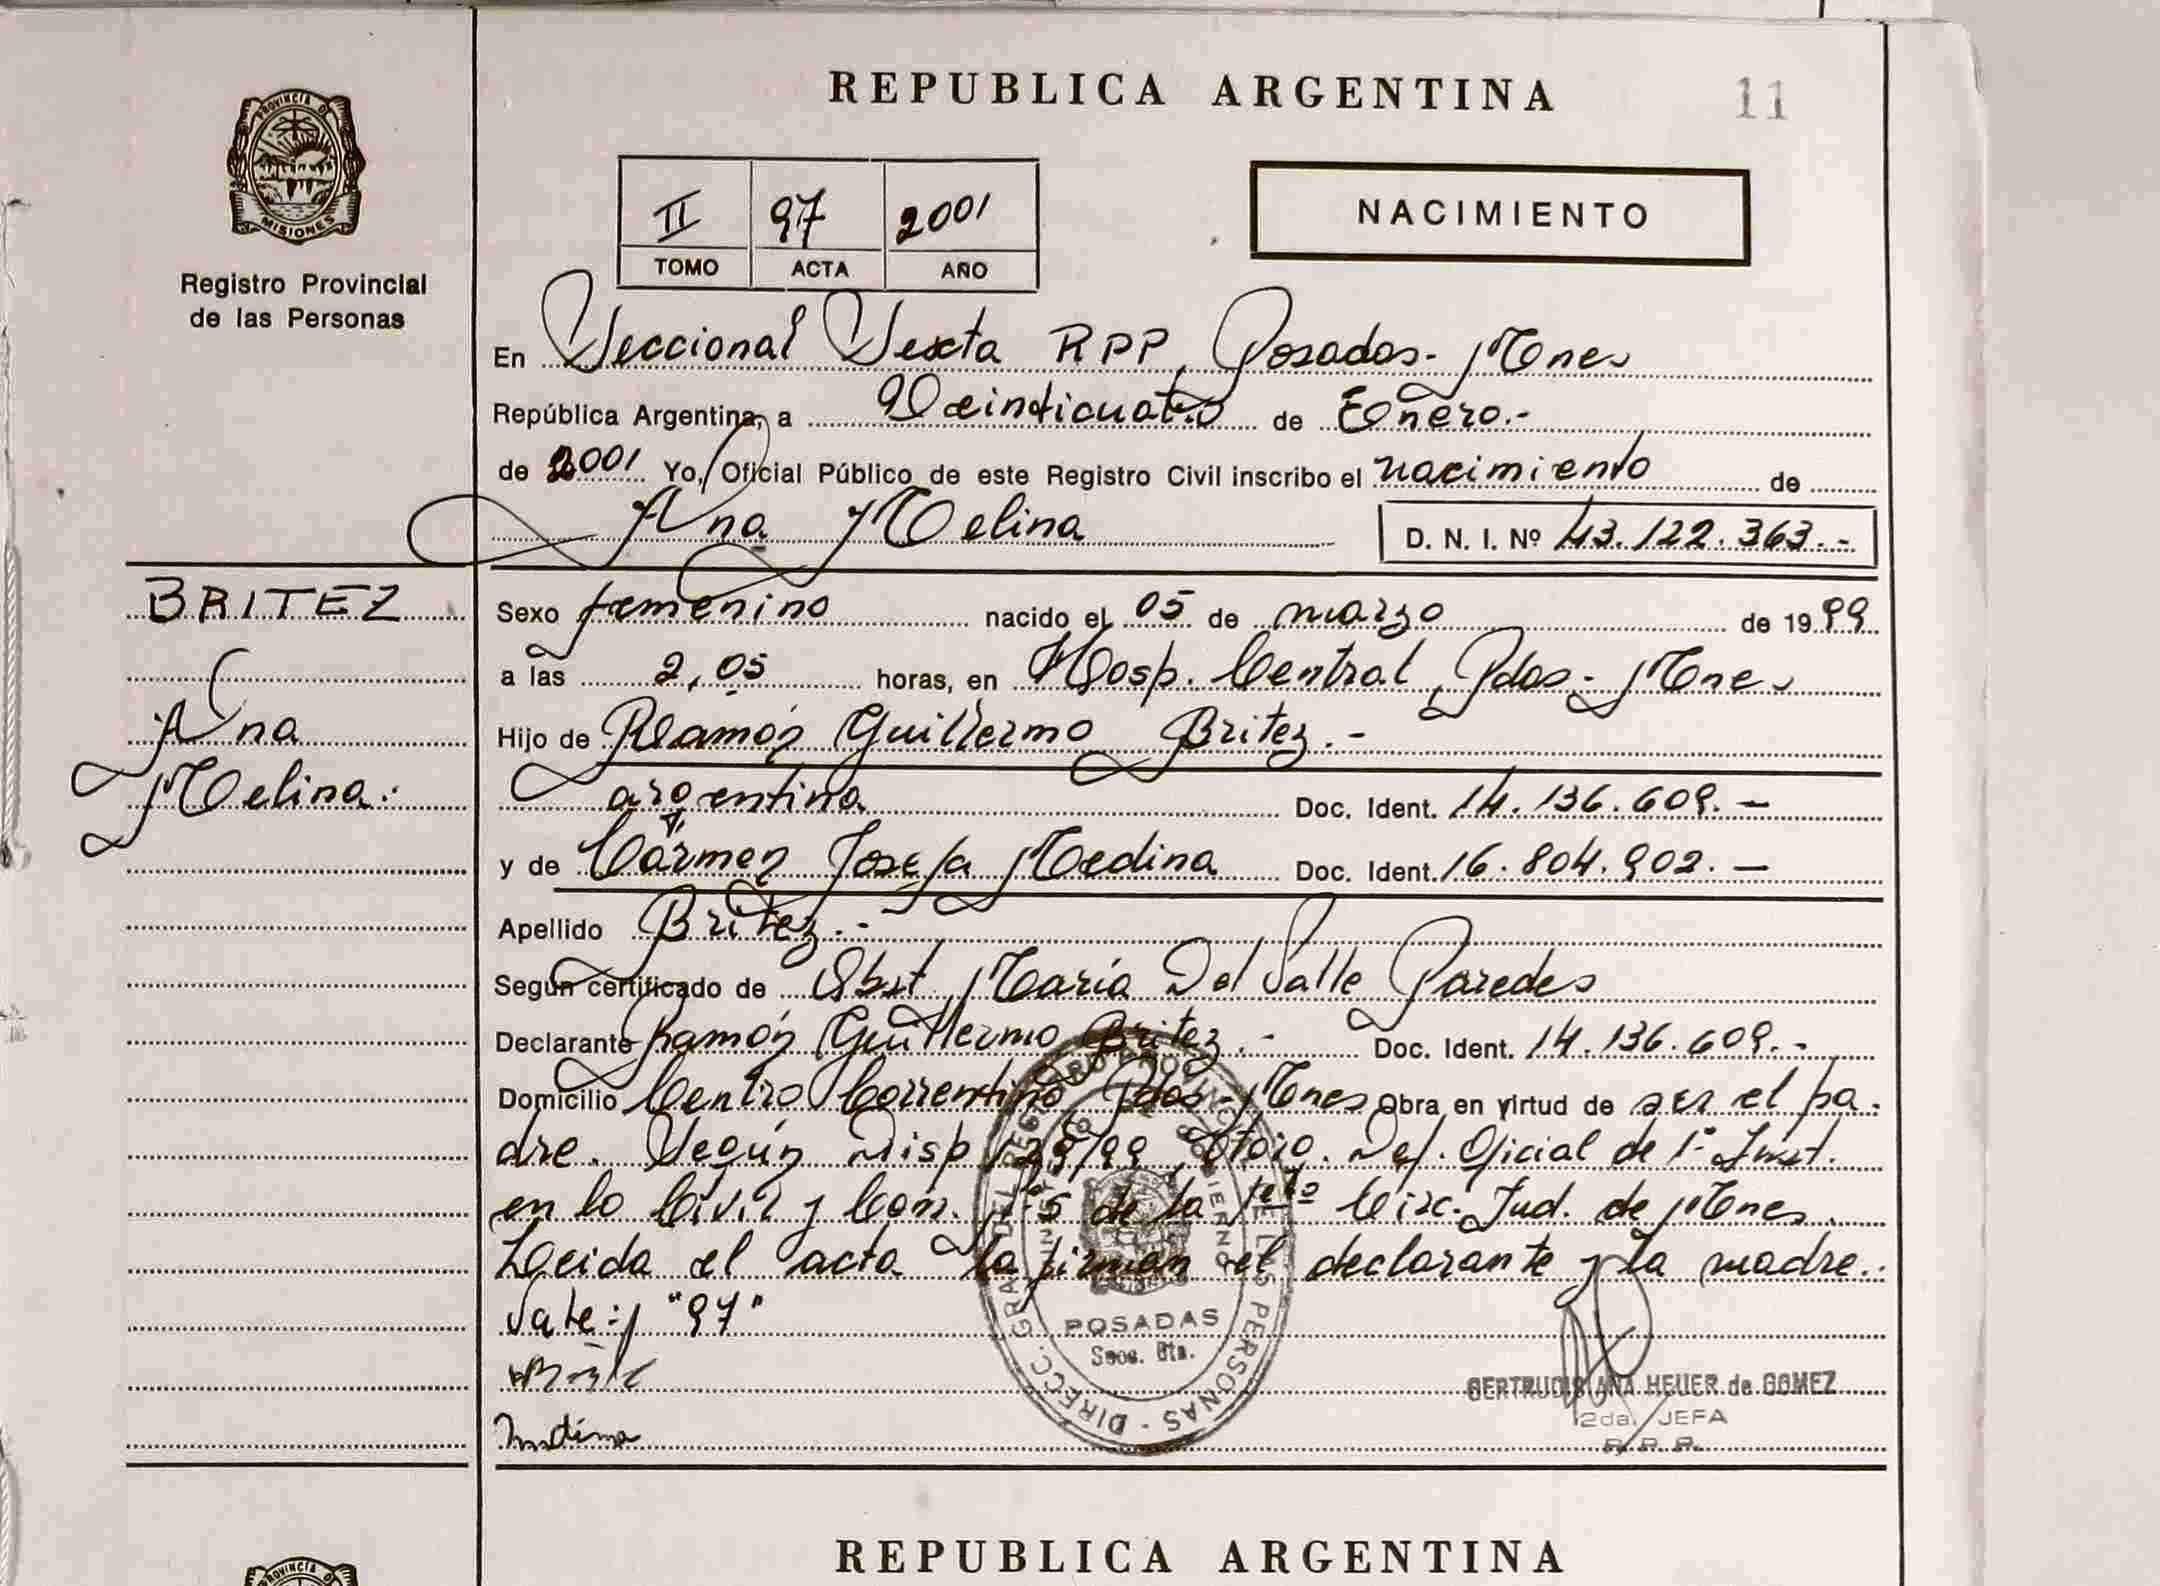 REPUBLICA ARGENTINA
11
PROVINCIA DE
MISIONES
Registro Provincial
de las Personas
II 97 2001
TOMO ACTA AÑO
NACIMIENTO
En Seccional Sexta RPP, Posadas - Mnes
República Argentina, a Veinticuatro de Enero.-
de 2001 Yo, Oficial Público de este Registro Civil inscribo el nacimiento de
Ana Melina D. N. I. Nº 43.122.363.-
BRITEZ
Ana
Melina:
Sexo femenino nacido el 05 de marzo de 1999
a las 2,05 horas, en Hosp. Central, Pdas - Mnes
Hijo de Ramón Guillermo Britez.-
argentina Doc. Ident. 14.136.609.-
y de Cármen Josefa Medina Doc. Ident. 16.804.902.-
Apellido Britez.-
Según certificado de Obst. María Del Valle Paredes
Declarante Ramón Guillermo Britez.- Doc. Ident. 14.136.609.-
Domicilio Centro Correntino Pdas - Mnes Obra en virtud de ser el pa-
dre. Según Disp 129/99, Def. Oficial de 1ª Inst.
en lo Civil y Com. Nº 5 de la 1era Circ. Jud. de Mnes.
Leida el acta la firman el declarante y la madre.
Vale: "97"
POSADAS
Secc. 6ta.
GERTRUDIS ANA HEUER de GOMEZ
2da. JEFA
R. P. P.
REPUBLICA ARGENTINA
PROVINCIA